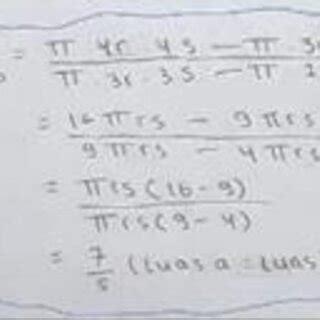 = π 4r 4s — π 3
π 3r . 3s — π 2
= 16 πrs - 9 πrs
9 πrs - 4 πrs
= πrs (16 - 9)
πrs (9 - 4)
= 7
5 (luas a = luas